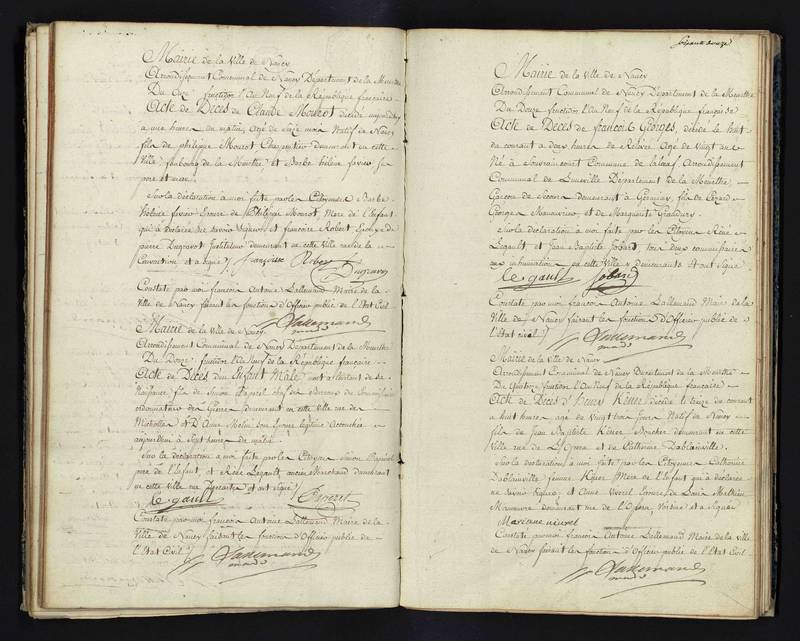 Mairie de la Ville de Nancy
Arrondissement Communal de Nancy Département de la Meurthe
Du Onze fructidor l'an Neuf de la République française
Acte de Décès de Claude Mourot décédé
à une heure du matin, age de Seize mois Natif de Nancy
fils de philippe Mourot Charpentier demeurant en cette
Ville, faubourg de la Meurthe, et Barbe hélène favier Se
pere et mere.
Sur la déclaration à moi faite par les Citoyennes Barbe
helenne favier Epouse de Philippe Mourot, Mere de l'Enfant
qui a déclaré ne savoir Signer et francoise Robert Epouse de
pierre Dugravot Instituteur demeurant en cette ville rue de la
Convention et a Signé françoise Robert
Dugravot
Constaté par moi françois Antoine Lallemand Maire de la
Ville de Nancy faisant les fonction d'Officier public de l'Etat Civil
Lallemand
Mairie de la Ville de Nancy
Arrondissement Communal de Nancy Département de la Meurthe
Du Douze fructidor l'an Neuf de la République française
Acte de Décès d'un Enfant Male mort à l'instant de Sa
Naissance fils de Simon
ordonnateur des Guerres demeurant en cette ville rue de
et D'Anne son Epouse légitime accouchée
aujourd'hui à Sept heures du matin.
Sur la déclaration a moi faite par les Citoyens Simon
pere de l'Enfant, et René Legault ancien Marchand demeurant
en cette ville rue et ont signé
Le gault
Constaté par moi françois Antoine Lallemand Maire de la
Ville de Nancy faisant les fonction d'Officier public de
l'Etat Civil
Lallemand
Soixante douze
Mairie de la Ville de Nancy
Arrondissement Communal de Nancy Département de la Meurthe
Du Douze fructidor l'an Neuf de la République française
Acte de Décès de françois Georges, décédé le huit
du courant à deux heures de Relevée Age de Vingt ans
Né à Commune de Arrondissement
Communal de Luneville Département de la Meurthe,
Garçon de demeurant à fils de
Georges Manoeuvre et de Marguerite
Sur la déclaration à moi faite par les Citoyens René
Legault et Jean Baptiste Jobard, tous deux commissaires
aux inhumations en cette Ville y demeurants et ont signé
Le gault Jobard
Constaté par moi françois Antoine Lallemand Maire de la
Ville de Nancy faisant les fonction d'Officier public de
l'Etat civil
Lallemand
Mairie de la Ville de Nancy
Arrondissement Communal de Nancy Département de la Meurthe
Du Quatorze fructidor l'An Neuf de la République française
Acte de Décès d'henry décédé le treize du courant
à huit heures age de Vingt trois Jours Natif de Nancy
fils de Jean Baptiste Boucher demeurant en cette
Ville rue de et de Catherine Dablainville.
Sur la déclaration à moi faite par les Citoyennes Catherine
Dablainville femme Mere de l'Enfant qui a déclaré
ne Savoir Signer, et Anne Epouse de Mathieu
Manoeuvre demeurant rue de Voisine et a Signé
Constaté par moi françois Antoine Lallemand Maire de la Ville
de Nancy faisant les fonction d'Officier public de l'Etat Civil
Lallemand